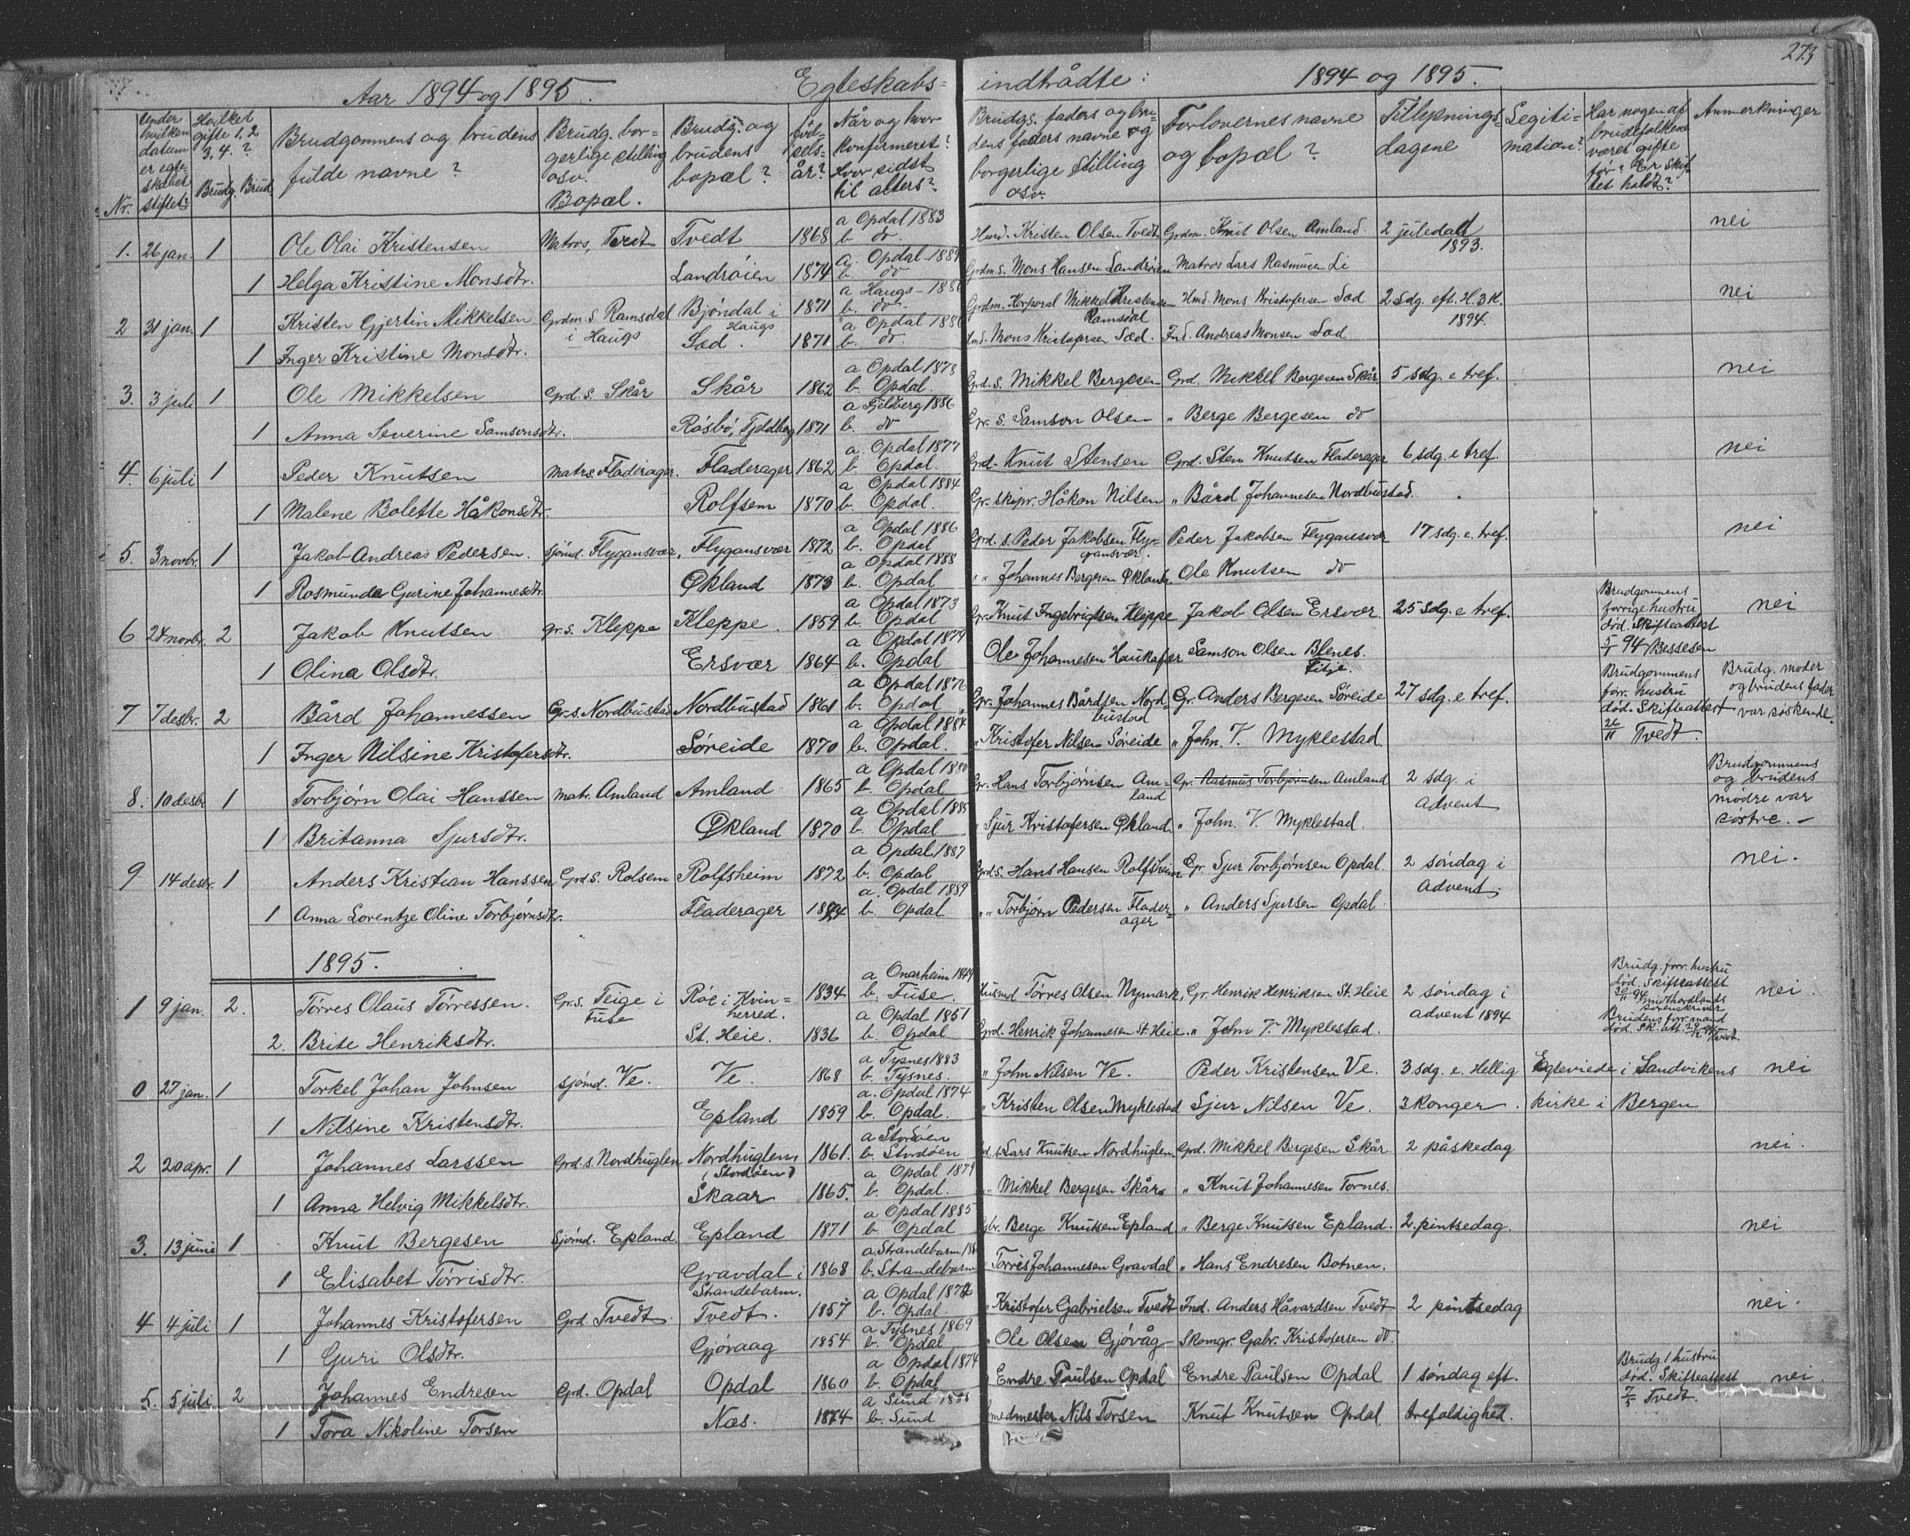 273
Aar 1894 og 1895. Egteskabs- indtrådte: 1894 og 1895.
Nr. Under hvilken datum er egteskabet stiftet? Hvilket gifte 1. 2. 3. 4.? Brudg. Brud Brudgommens og brudens fulde navne? Brudg. borgerlige stilling osv. Bopæl. Brudg. og brudens bopæl? fødselsår? Når og hvor konfirmeret? hvor sidst til alters? Brudgs. faders og brudens faders navne og borgerlige stilling osv. Forlovernes navne og bopæl? Tillysningsdagene Legitimation? Har nogen af brudefolkene været gifte før? Er skiftet holdt? Anmerkninger
1. 26 jan. 1 Ole Olai Kristensen Matros, Tvedt Tvedt 1868 a Opdal 1883 b. do. Husd. Kristen Olsen Tvedt Grdm. Knut Olsen Amland 2 juledad 1893. nei
1 Helga Kristine Monsdtr. Landrøien 1874 a. Opdal 1889 b. do Grdm. S. Mons Hansen Landrøien Matros Lars Rasmusen Li
2 31 jan. 1 Kristen Gjertin Mikkelsen Grdm. S. Ramsdal i Haugs Bjøndal i Haugs 1871 a Haugs 1886 b. do. Grdm. Korporal Mikkel Kristensen Ramsdal Husd. Mons Kristofersen Sæd 2 Sdg. eft. H. 3 K. 1894. nei
1 Inger Kristine Monsdtr. Sæd. 1871 a Opdal 1886 b. do Mons Kristofersen Sæd. Ind. Andreas Monsen Sæd
3. 3 juli 1 Ole Mikkelsen Grd. S. Skår Skår 1862 a Opdal 1878 b. Opdal. Grd. S. Mikkel Bergesen Grd. Mikkel Bergesen Skår 5 sdg. e tref. nei
1 Anna Severine Samsonsdtr. Røsbø, Fjeldberg 1871 a Fjelberg 1886 b. do Gr. S. Samson Olsen " Berge Bergesen do
4. 6 juli 1 Peder Knutsen Matrs. Fladerager. Fladerager 1862 a. Opdal 1877 b. Opdal. Grd. Knut Stensen Grd. Sten Knutsen Fladerager 6 sdg. e tref. nei
1 Malene Bolette Håkonsdtr. Rolfsem 1870 a Opdal 1884 b. Opdal. Gr. skipr. Håkon Nilsen " Bård Johannesen Nordbustad.
5. 3 novbr. 1 Jakob Andreas Pedersen. sjømd. Flygansvær. Flygansvær 1872 a Opdal 1886 b. Opdal Grd. S. Peder Jakobsen Flygansvær. Peder Jakobsen Flygansvær 17 sdg. e. tref. nei
1 Rosmunda Gurine Johannesdtr. Økland 1873 a Opdal 1888 b. Opdal " " Johannes Bergesen Økland Ole Knutsen do
6 24 novbr. 2 Jakob Knutsen gr. S. Kleppe Kleppe. 1859 a Opdal 1873 b. Opdal Gr. Knut Ingebrigtsen Kleppe Jakob Olsen Ersvær. 25 sdg. e tref. Brudgommens forrige hustru død. Skifteattest 5/7 94 Bessesen nei
1 Olina Olsdtr. Ersvær 1864 a Opdal 1879 b. Opdal Ole Johannesen Haukafær Samson Olsen Blenes. Fitje.
7 7 desbr. 2 Bård Johannessen Gr. S. Nordbustad Nordbustad 1861 a Opdal 1876 b. Opdal Gr. Johannes Bårdsen Nordbustad Gr. Anders Bergesen Søreide 27 sdg. e tref. Brudgommens for. hustru død. Skifteattest 26/11 Tvedt. Brudg. moder og brudens fader var søskende.
1 Inger Nilsine Kristofersdtr. Søreide 1870 a Opdal 1884 b. Opdal. " Kristofer Nilsen Søreide " John. V. Myklestad.
8. 10 desbr 1 Torbjørn Olai Hanssen matr. Amland Amland 1865 a Opdal 1880 b. Opdal Gr. Hans Torbjørnsen Amland Gr. Rasmus Torbjørnsen Amland 2 sdg. i advent Brudgommens og brudens mødre var søstre. -
1 Britanna Sjursdtr. Økland 1870 a Opdal 1885 b. Opdal " Sjur Kristofersen Økland " John. V. Myklestad.
9 14 desbr. 1 Anders Kristian Hanssen Grd. S. Rolsem Rolfsheim 1872 a Opdal 1887 b. Opdal Grd. S. Hans Hansen Rolfsheim Gr. Sjur Torbjørnsen Opdal 2 søndag i advent. nei.
1 Anna Lorentze Oline Torbjørnsdtr. Fladerager 1874 a. Opdal 1889 b. Opdal " " Torbjørn Pedersen Fladerager " Anders Sjursen Opdal
1895.
1 9 jan. 2. Tørres Olaus Tørressen. Gr. S. Teige i Fuse Røe i Kvinherred. 1834 a Onarheim 1849 b. Fuse. Husmd Tørres Olsen Nymark, Gr. Henrik Henriksen St. Heie 2 søndag i advent 1894 Brudg. forr. hustru død. Skifteattest 94 Midthordlands Sorenskriver Brudens forr. mand død. Sk. att. Tvedt. nei.
2. Brite Henriksdtr. St. Heie. 1836 a Opdal 1851 b. Opdal Grd. Henrik Johannesen St. Heie " John V. Myklestad.
0 27 jan. 1 Torkel Johan Johnsen sjømd. Ve. Ve. 1868 a Tysnes 1883 b. Tysnes. " John Nilsen Ve. Peder Kristensen Ve. 3 sdg. e. Hellig Egteviede i Sandvikens nei
1 Nilsine Kristensdtr. Epland 1859 a. Opdal 1874 b. Opdal. " Kristen Olsen Myklestad Sjur Nilsen Ve. 3 Konger. kirke i Bergen
2 20 apr. 1 Johannes Larssen Grd. S. Nordhuglen Nordhuglen, (Stordøen) 1861. a Stordøen b. Stordøen Lars Knutsen Nordhuglen Grd. Mikkel Bergesen Skår 2 påskedag nei.
1 Anna Helvig Mikkelsdtr. Skaar 1865. a Opdal 1879 b. Opdal. " Mikkel Bergesen Skår. " Knut Johannesen Tornes.
3. 13 juni 1 Knut Bergesen Sjømd. Epland Epland 1871 a Opdal 1885 b Opdal Berge Knutsen Epland " Berge Knutsen Epland. 2. pintsedag. nei
1 Elisabet Tørrisdtr. Gravdal i Strandebarm. 1868 a. Strandebarm b. Strandebarm " Tørres Johannesen Gravdal " Hans Endresen Botnen.
4 4 juli 1 Johannes Kristofersen Grd. Tvedt. Tvedt. 1857 a Opdal b. Opdal " Kristofer Gabrielsen Tvedt Ind. Anders Håvardsen Tvedt 2 pintsedag nei.
1 Guri Olsdtr. Gjøvaag 1854 a Tysnes 1869 b. Opdal " Ole Olsen Gjøvåg Skomgr. Gabr. Kristofersen do
5. 5 juli 2 Johannes Endresen Grd. Opdal Opdal 1860 a Opdal 1874 b. Opdal Endre Paulsen Opdal Endre Paulsen Opdal 1 søndag eft. Brudg. 1 hustru død. Skifteattest 7/5 Tvedt. nei.
1 Tora Nikoline Torsen Næs. 1874 a Sund b. Sund Nils Torsen Knut Knutsen Opdal trefoldighed.